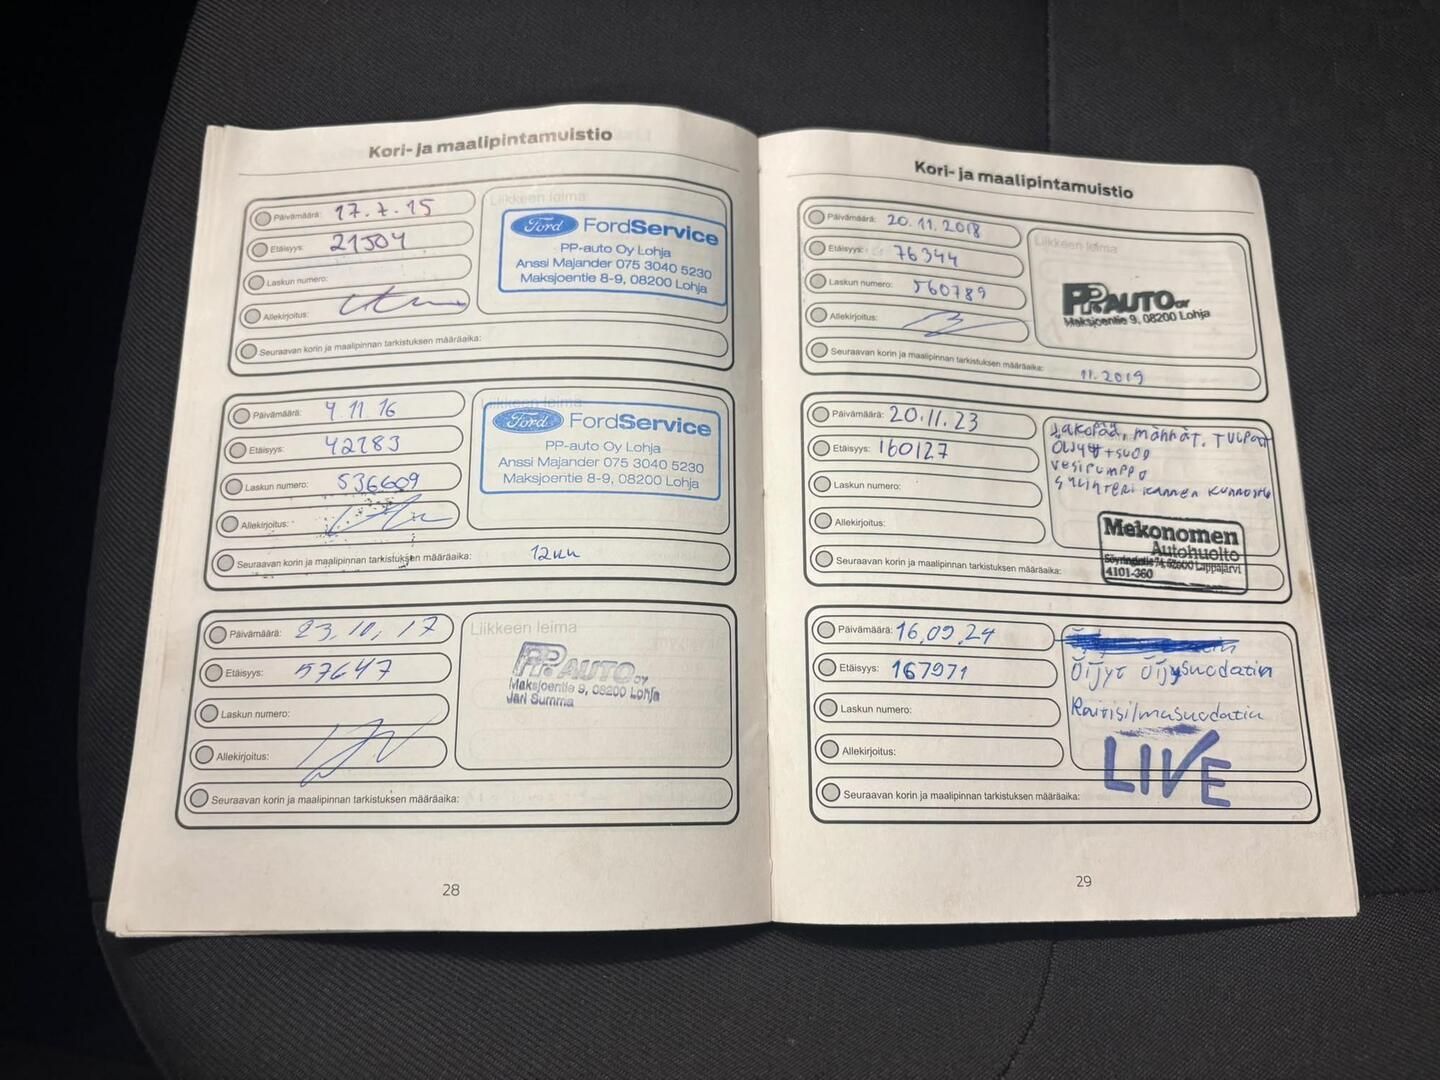 Kori- ja maalipintamuistio
Päivämäärä: 17.7.15
Etäisyys: 21504
Laskun numero:
Allekirjoitus:
Seuraavan korin ja maalipinnan tarkistuksen määräaika:
Liikkeen leima
Ford FordService
PP-auto Oy Lohja
Anssi Majander 075 3040 5230
Maksjoentie 8-9, 08200 Lohja
Päivämäärä: 4 11 16
Etäisyys: 42283
Laskun numero: 536609
Allekirjoitus:
Seuraavan korin ja maalipinnan tarkistuksen määräaika: 12kk
Liikkeen leima
Ford FordService
PP-auto Oy Lohja
Anssi Majander 075 3040 5230
Maksjoentie 8-9, 08200 Lohja
Päivämäärä: 23,10,17
Etäisyys: 57647
Laskun numero:
Allekirjoitus:
Seuraavan korin ja maalipinnan tarkistuksen määräaika:
Liikkeen leima
PP AUTO OY
Maksjoentie 9, 08200 Lohja
Jari Summa
28
Kori- ja maalipintamuistio
Päivämäärä: 20.11.2018
Etäisyys: 76344
Laskun numero: 560789
Allekirjoitus:
Seuraavan korin ja maalipinnan tarkistuksen määräaika: 11.2019
Liikkeen leima
PP AUTO OY
Maksjoentie 9, 08200 Lohja
Päivämäärä: 20.11.23
Etäisyys: 160127
Laskun numero:
Allekirjoitus:
Seuraavan korin ja maalipinnan tarkistuksen määräaika:
Jakopää, männät, TULPAT
vesipumppu
sylinteri kannen
Mekonomen
Autohuolto
Lappajärvi
4101-360
Päivämäärä: 16.09.24
Etäisyys: 167971
Laskun numero:
Allekirjoitus:
Seuraavan korin ja maalipinnan tarkistuksen määräaika:
Öljyt Öljysuodatin
Raitisilmasuodatin
LIVE
29